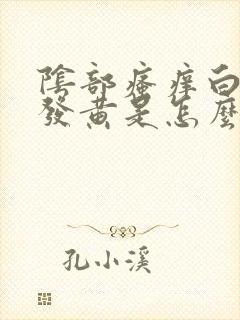 陰部瘙癢白
發黃是怎麼
孔小溪